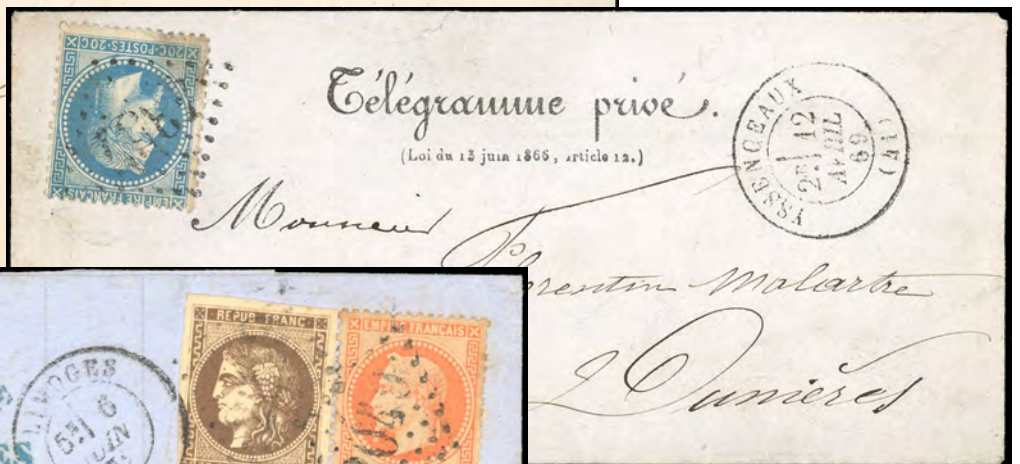 20C·POSTES·20C
EMPIRE FRANÇAIS
Télégramme privé.
(Loi du 13 juin 1866, article 12.)
YSSENGEAUX
2E 12
AVRIL
69
(41)
Monsieur
Florentin Malartre
à Dunières
LIMOGES
5E 6
JUIN
REPUB FRANC
EMPIRE FRANÇAIS